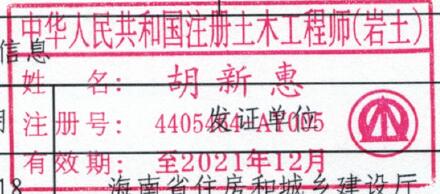 中华人民共和国注册土木工程师(岩土)
信息
姓 名: 胡新惠
注册号: 发证单位
有效期: 至2021年12月
18 海南省住房和城乡建设厅